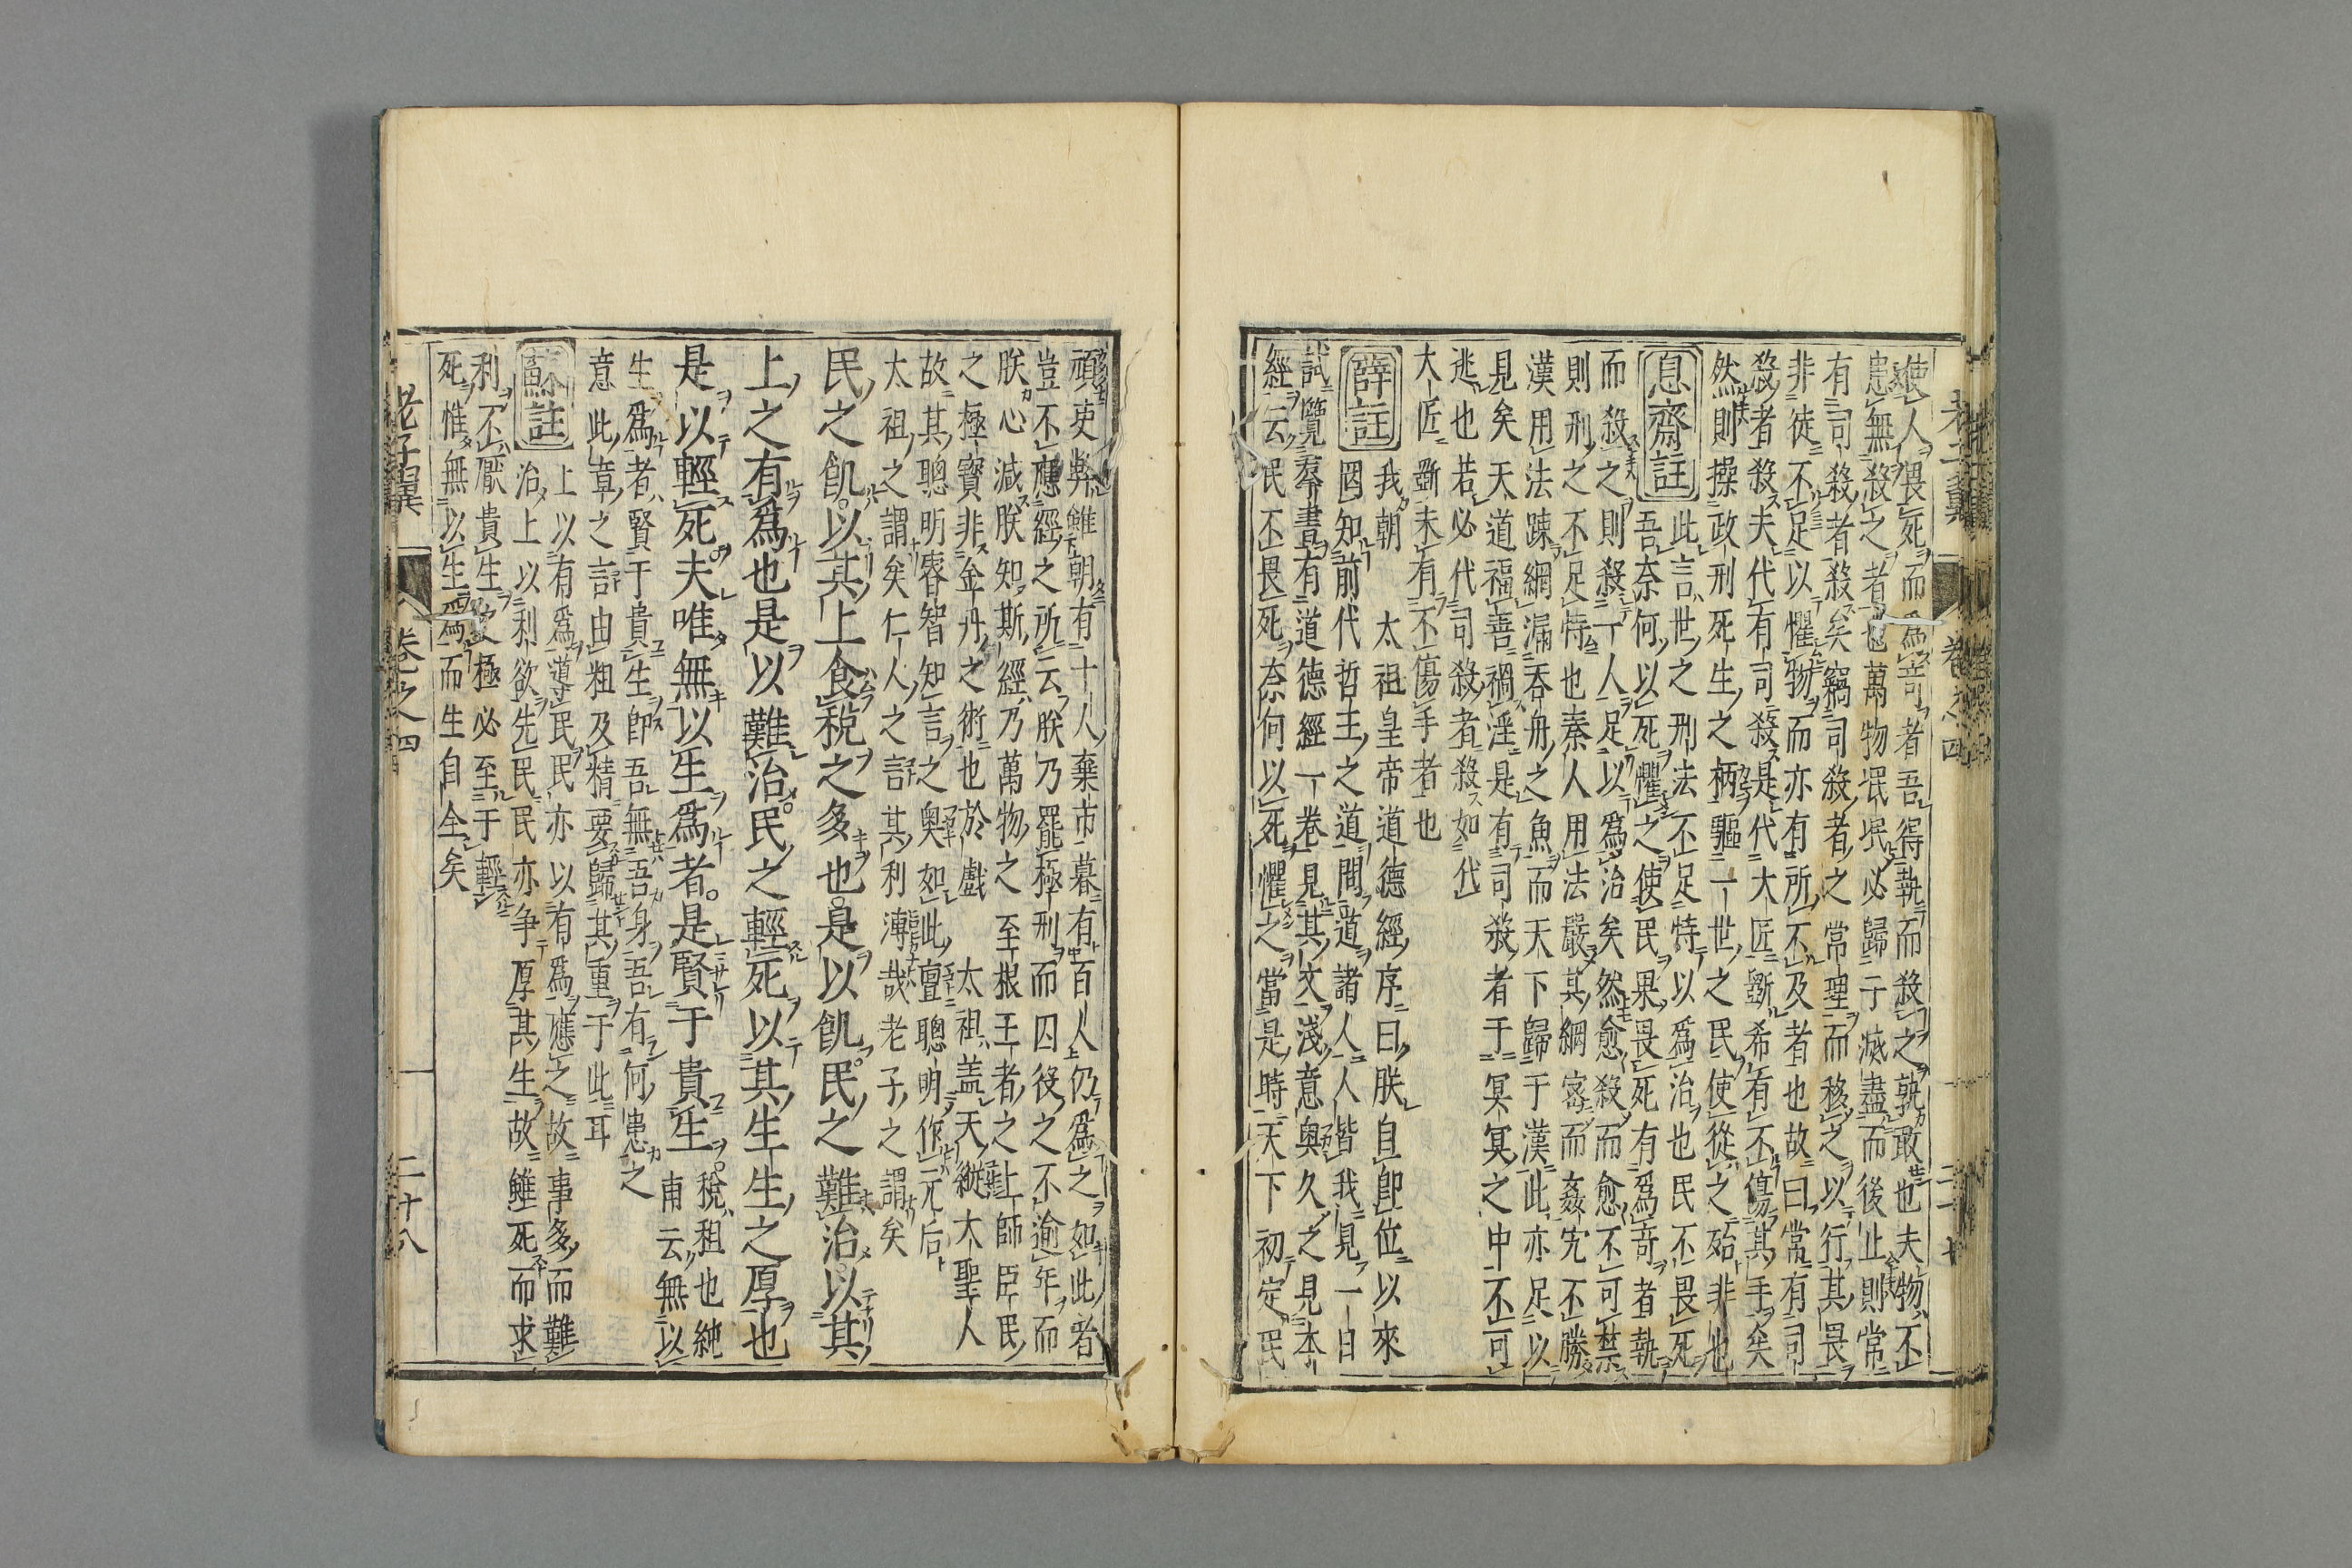 使人畏死而爲竒者吾得執而殺之孰敢也夫物不
患無殺之者也萬物泯泯必歸于滅盡而後止則常
有司殺者殺矣竊司殺者之常理而移之以行其畏
非徒不足以懼物而亦有所不及者也故曰常有司
殺者殺夫代有司殺是代大匠斲希有不傷其手矣
然則操政刑死生之柄驅一世之民使從之殆非也
息齋註
此言世之刑法不足恃以爲治也民不畏死
吾奈何以死懼之使民果畏死有爲竒者執
而殺之則殺一人足以爲治矣然愈殺而愈不可禁
則刑之不足恃也秦人用法嚴其網宻而姦宄不勝
漢用法踈網漏吞舟之魚而天下歸于漢此亦足以
見矣天道福善禍淫是有司殺者于冥冥之中不可
逃也若必代司殺者殺如代
大匠斲未有不傷手者也
薛註
我朝 太祖皇帝道德經序曰朕自卽位以來
罔知前代哲王之道問道諸人人皆我見一日
試覽羣書有道德經一卷見其文淺意奥久之見本
經云民不畏死奈何以死懼之當是時天下初定民
頑吏弊雖朝有十人棄市暮有百人仍爲之如此者
豈不應經之所云朕乃罷極刑而囚役之不逾年而
朕心減朕知斯經乃萬物之至根王者之上師臣民
之極寶非金丹之術也於戲 太祖盖天縱大聖人
故其聰明睿智知言之奥如此亶聰明作元后
太祖之謂矣仁人之言其利溥哉老子之謂矣
民之飢以其上食稅之多也是以飢民之難治以其
上之有爲也是以難治民之輕死以其生生之厚也
是以輕死夫唯無以生爲者是賢于貴生
稅租也純
甫云無以
生爲者賢于貴生卽吾無吾身吾有何患之
意此章之言由粗及精要歸其重于此耳
蘇註
上以有爲導民民亦以有爲應之故事多而難
治上以利欲先民民亦争厚其生故雖死而求
利不厭貴生之極必至于輕
死惟無以生爲而生自全矣
老子翼 卷之四 二十八